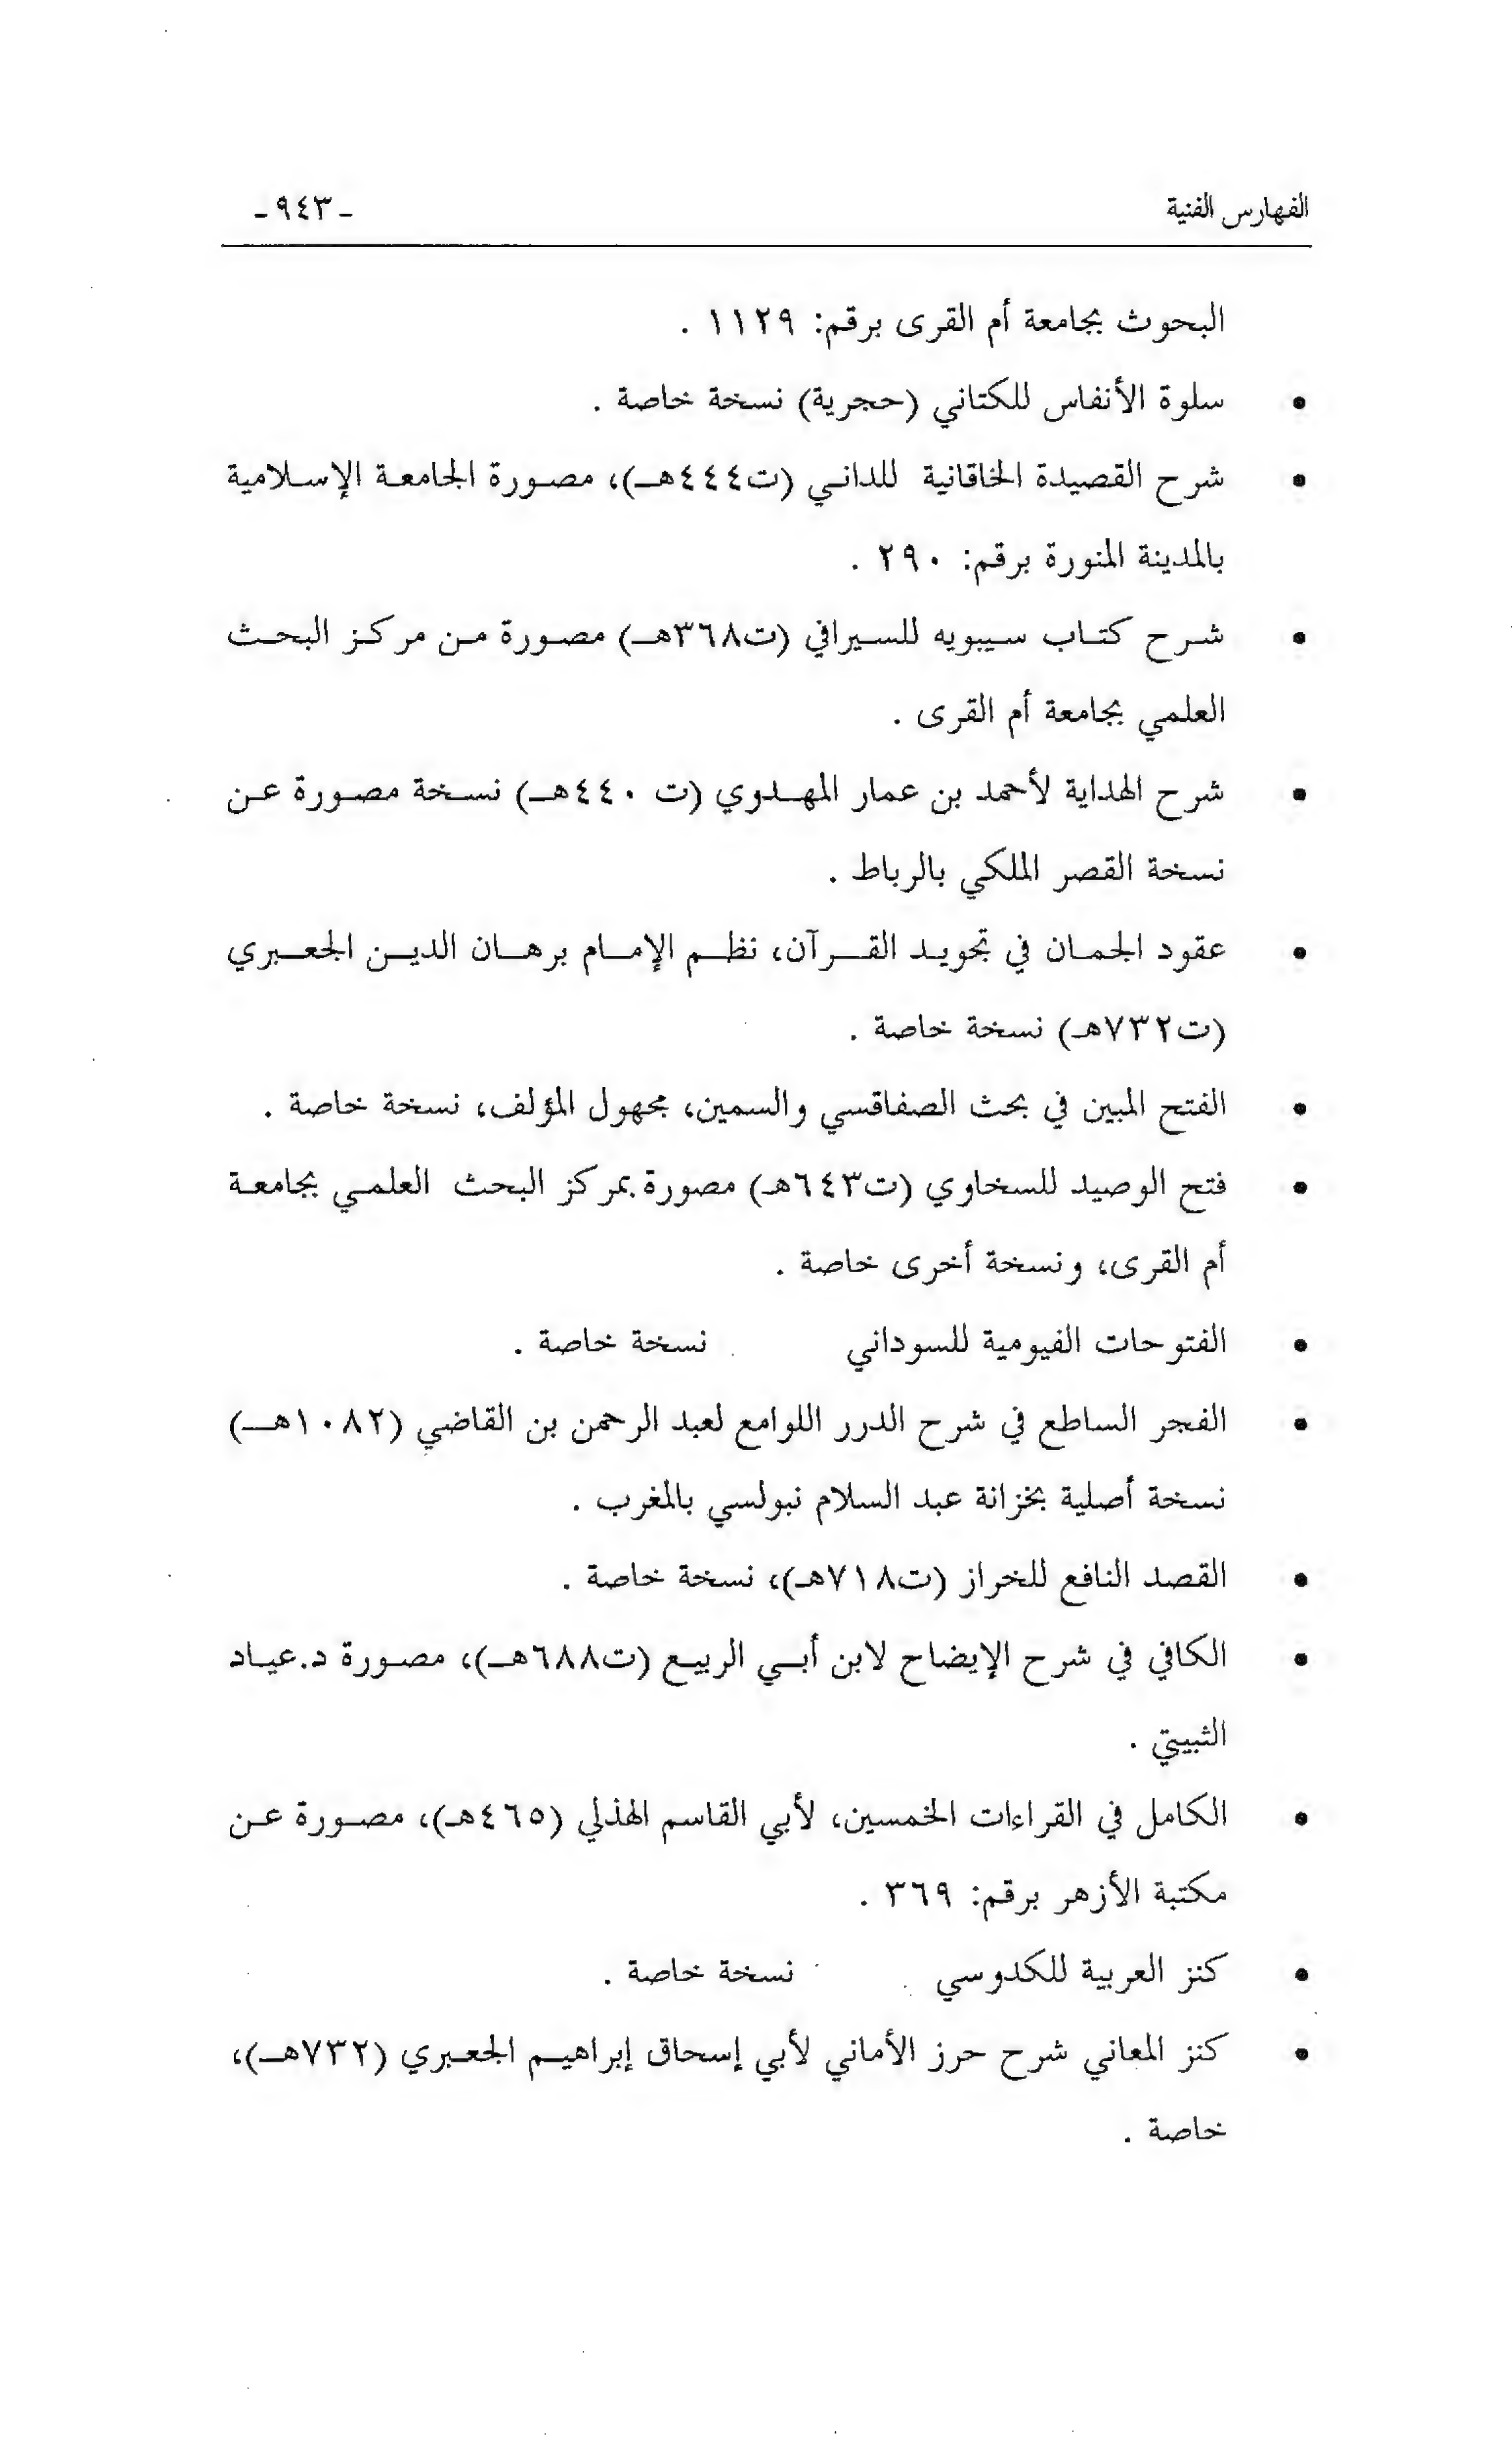 الفهارس الفنية
- ٩٤٣ -
البحوث بجامعة أم القرى برقم: ١١٢٩ .
• سلوة الأنفاس للكتاني (حجرية) نسخة خاصة .
• شرح القصيدة الخاقانية للداني (ت٤٤٤هـ)، مصورة الجامعة الإسلامية
بالمدينة المنورة برقم: ٢٩٠ .
• شرح كتاب سيبويه للسيرافي (ت٣٦٨هـ) مصورة من مركز البحث
العلمي بجامعة أم القرى .
• شرح الهداية لأحمد بن عمار المهدوي (ت ٤٤٠هـ) نسخة مصورة عن
نسخة القصر الملكي بالرباط .
• عقود الجمان في تجويد القرآن، نظم الإمام برهان الدين الجعبري
(ت٧٣٢هـ) نسخة خاصة .
• الفتح المبين في بحث الصفاقسي والسمين، مجهول المؤلف، نسخة خاصة .
• فتح الوصيد للسخاوي (ت٦٤٣هـ) مصورة بمركز البحث العلمي بجامعة
أم القرى، ونسخة أخرى خاصة .
• الفتوحات الفيومية للسوداني نسخة خاصة .
• الفجر الساطع في شرح الدرر اللوامع لعبد الرحمن بن القاضي (١٠٨٢هـ)
نسخة أصلية بخزانة عبد السلام نبولسي بالمغرب .
• القصد النافع للخراز (ت٧١٨هـ)، نسخة خاصة .
• الكافي في شرح الإيضاح لابن أبي الربيع (ت٦٨٨هـ)، مصورة د.عياد
الثبيتي .
• الكامل في القراءات الخمسين، لأبي القاسم الهذلي (٤٦٥هـ)، مصورة عن
مكتبة الأزهر برقم: ٣٦٩ .
• كنز العربية للكدوسي نسخة خاصة .
• كنز المعاني شرح حرز الأماني لأبي إسحاق إبراهيم الجعبري (٧٣٢هـ)،
خاصة .